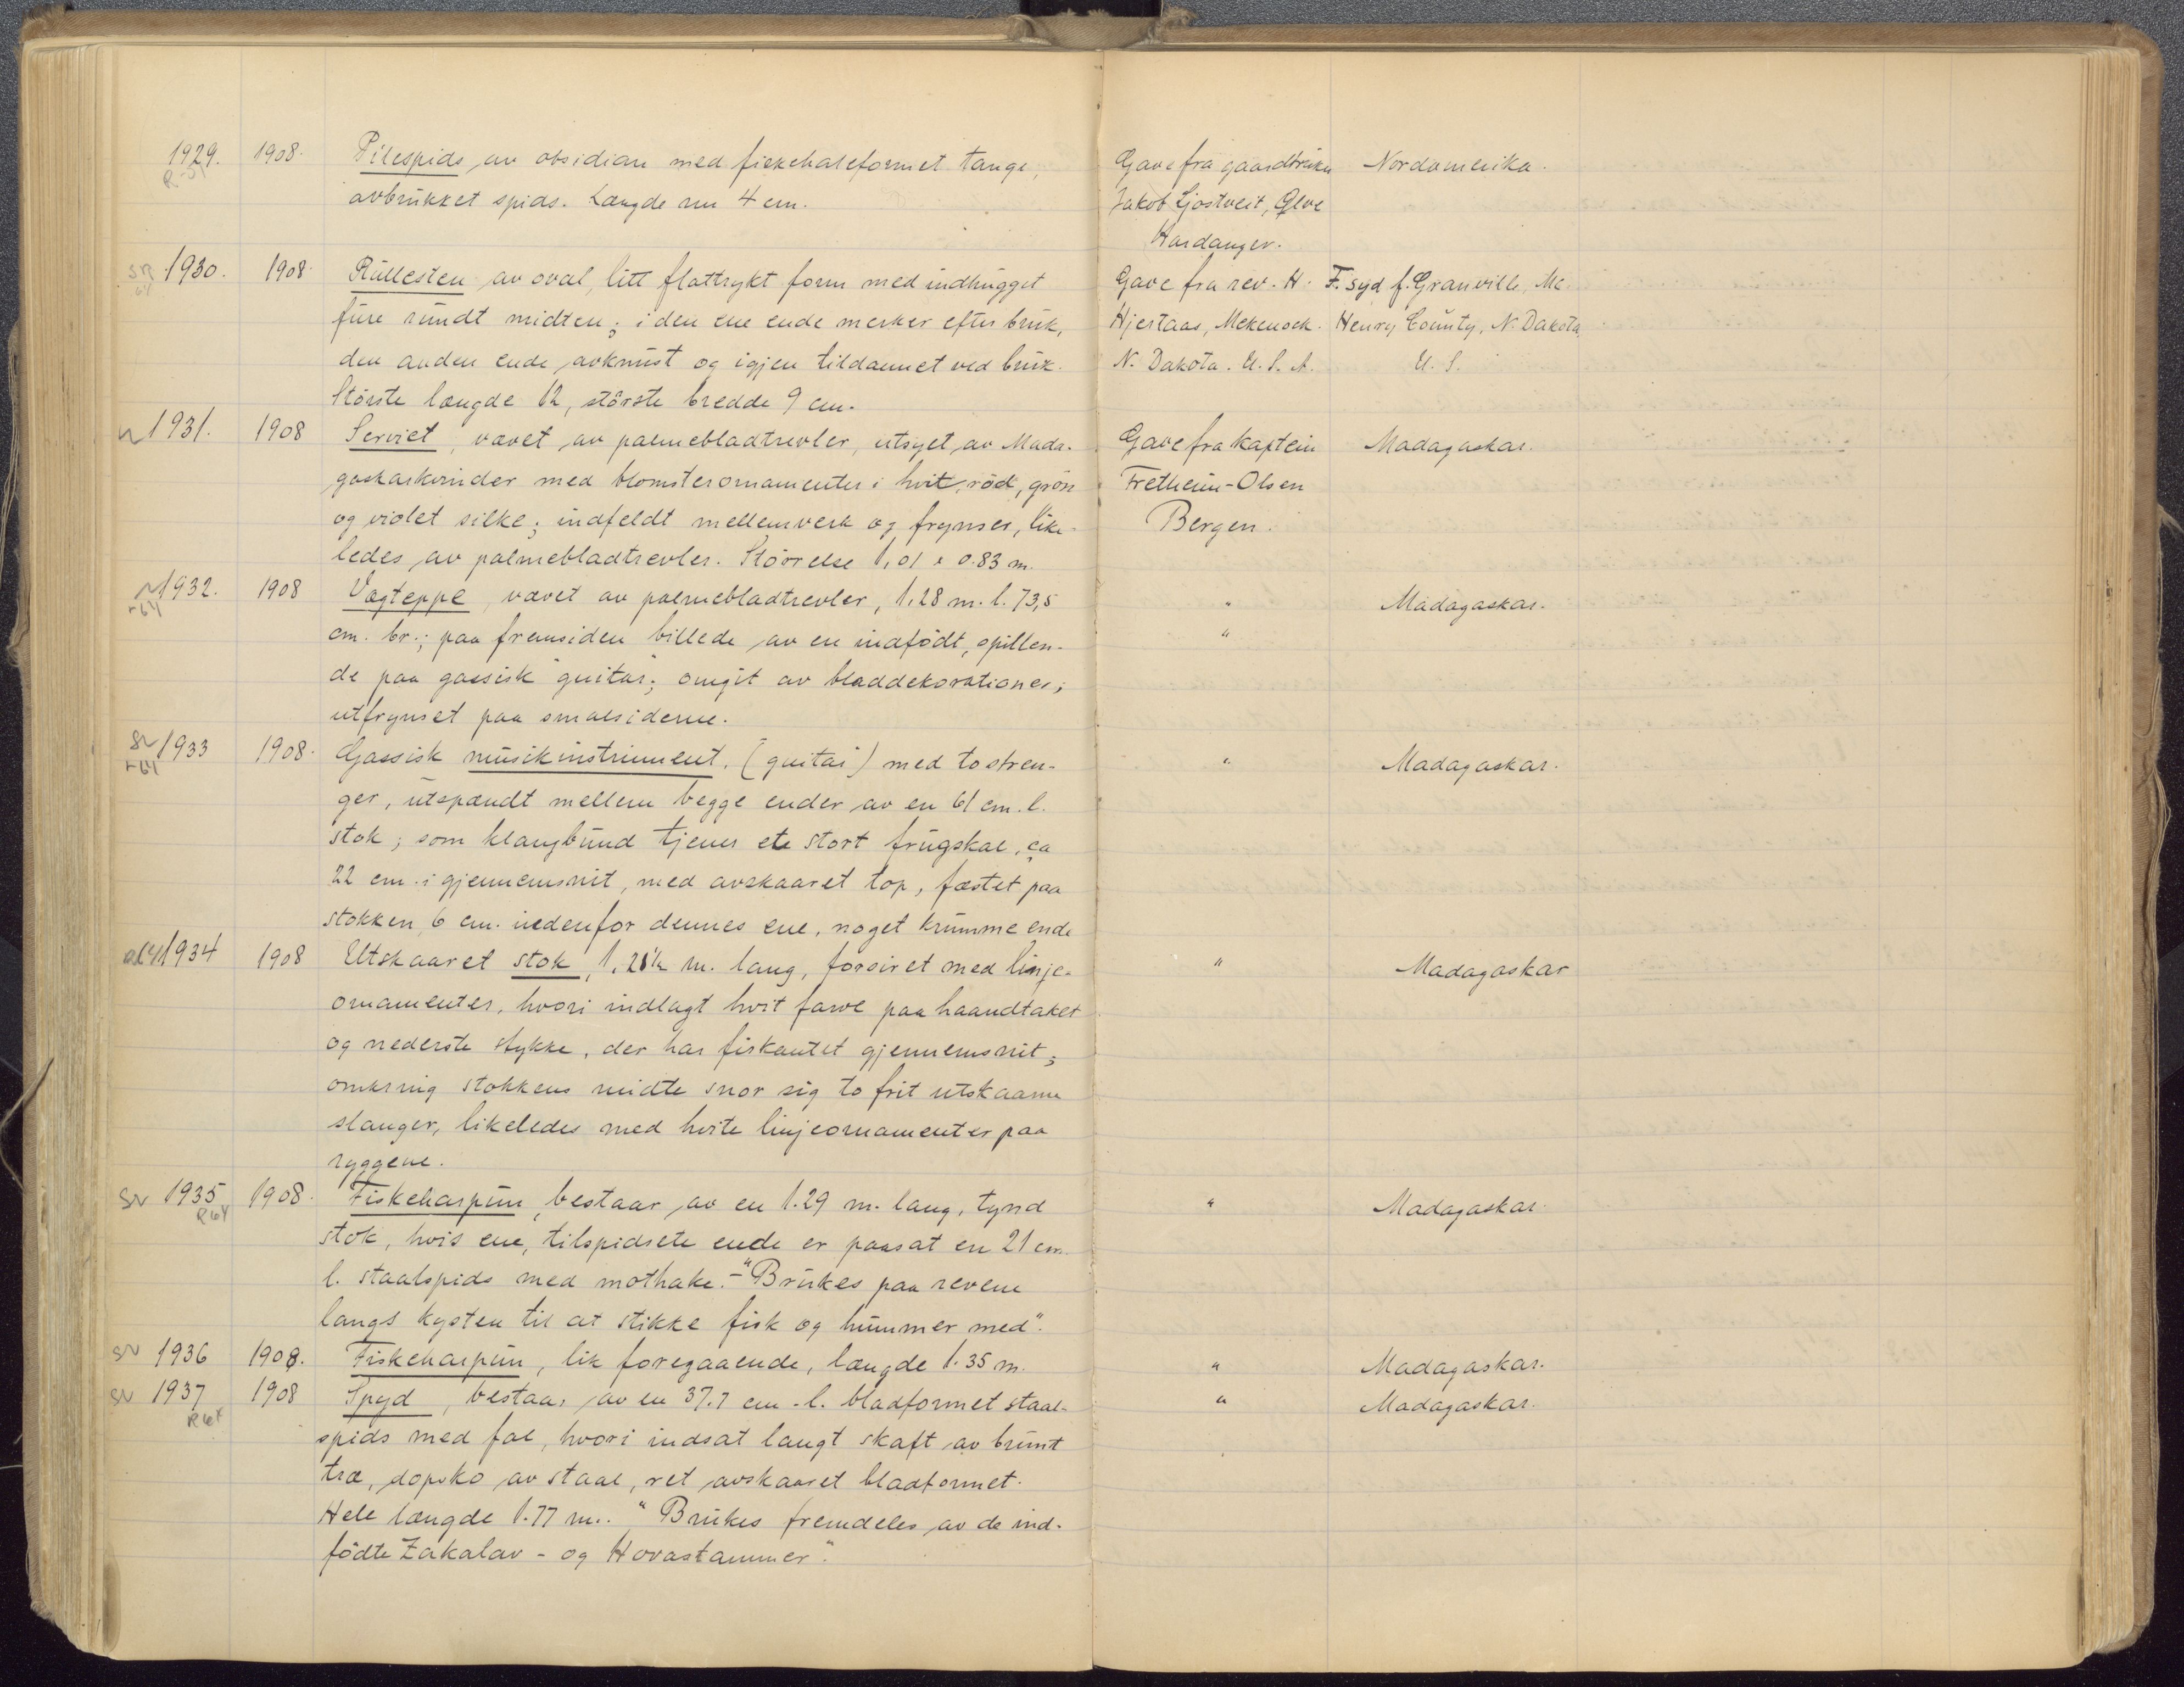 1929. 1908. Pilespids av obsidian med fiskehaleformet tange, Gave fra gaardbruker Nordamerika.
R-51
avbrukket spids. Længde nu 4 cm. Jakob Ljostveit, Ølve
Hardanger.
SN 1930. 1908. Rullesten av oval, litt flattrykt form med indhugget Gave fra rev. H. F. syd f. Granville, Mc.
64
fure rundt midten; i den ene ende merker efter bruk, Hjertaas, Mekenock. Henry County, N. Dakota,
den anden ende avknust og igjen tildannet ved bruk. N. Dakota. U. S. A. U. S.
Störste længde 12, störste bredde 9 cm.
N 1931. 1908 Serviet, vævet av palmebladtrevler, utsyet av Mada- Gave fra Kaptein Madagaskar.
gaskarkvinder med blomsterornamenter i hvit, röd, grön Fretheim-Olsen
og violet silke; indfeldt mellemverk og frynser, like- Bergen.
ledes av palmebladtrevler. Störrelse 1,01 x 0.83 m.
N 1932. 1908 Vægteppe, vævet av palmebladtrevler, 1.28 m. l. 73,5 " Madagaskar.
r64
cm. br.; paa fremsiden billede av en indfödt, spillen- "
de paa gassisk guitar; omgit av bladdekorationer;
utfrynset paa smalsiderne.
SN 1933 1908. Gassisk musikinstrument. (guitar) med to stren- " Madagaskar.
r64
ger, utspændt mellem begge ender av en 61 cm. l.
stok; som klangbund tjener et stort frugskal, ca
22 cm. i gjennemsnit, med avskaaret top, fæstet paa
stokken, 6 cm. nedenfor dennes ene, noget krumme ende
1934 1908 Utskaaret stok, 1,21½ m. lang, forsiret med linje- " Madagaskar
ornamenter, hvori indlagt hvit farve paa haandtaket
og nederste stykke, der har firkantet gjennemsnit;
omkring stokkens midte snor sig to frit utskaarne
slanger, likeledes med hvite linjeornamenter paa
ryggene.
SN 1935 1908. Fiskeharpun, bestaar av en 1.29 m. lang, tynd " Madagaskar.
R64
stok, hvis ene, tilspidsete ende er paasat en 21 cm.
l. staalspids med mothake. - "Brukes paa revene
langs kysten til at stikke fisk og hummer med".
SN 1936 1908. Fiskeharpun, lik foregaaende, længde 1.35 m. " Madagaskar.
SN 1937 1908 Spyd, bestaar av en 37.7 cm. l. bladformet staal- " Madagaskar.
R64
spids med fal, hvori indsat langt skaft av brunt
træ, dopsko av staal, ret avskaaret bladformet.
Hele længde 1.77 m.. "Brukes fremdeles av de ind-
födte Zakalav- og Hovastammer".